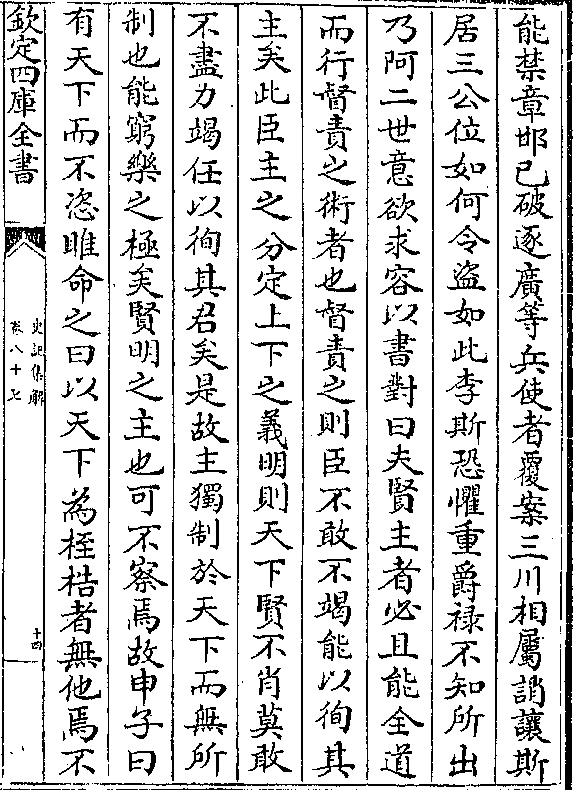 能禁章邯已破逐廣等兵使者覆案三川相屬誚讓斯
居三公位如何令盜如此李斯恐懼重爵禄不知所出
乃阿二世意欲求容以書對曰夫賢主者必且能全道
而行督責之術者也督責之則臣不敢不竭能以徇其
主矣此臣主之分定上下之義明則天下賢不肖莫敢
不盡力竭任以徇其君矣是故主獨制於天下而無所
制也能窮樂之極矣賢明之主也可不察焉故申子曰
有天下而不恣睢命之曰以天下為桎梏者無他焉不
欽定四庫全書
史記集解
卷八十七
十四